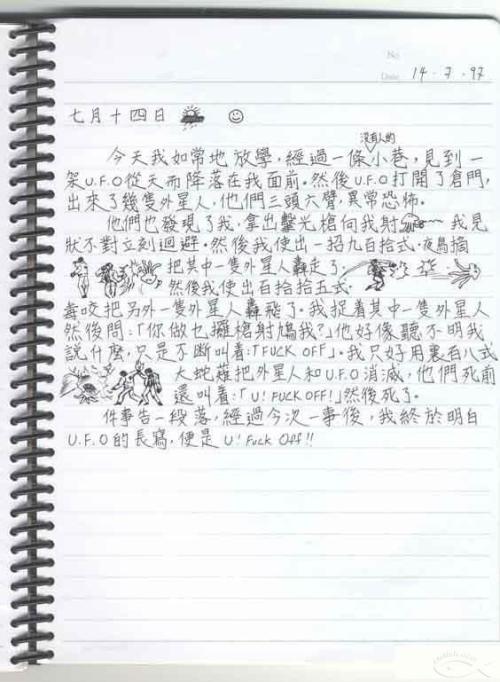 No.
Date 14.7.97
七月十四日
今天我如常地放學，經過一條沒有人的小巷，見到一
架U.F.O從天而降落在我面前。然後U.F.O打開了倉門，
出來了幾隻外星人，他們三頭六臂，異常恐怖。
他們也發現了我，拿出鐳光槍向我射 我見
狀不對立刻迴避。然後我使出一招九百拾式.
把其中一隻外星人轟走了.
然後我使出百拾拾五式.
毒咬把另外一隻外星人轟飛了。我捉着其中一隻外星人
然後問：「你做乜攞槍射鳩我?」他好像聽不明我
說什麼，只是不斷叫着：「FUCK OFF」。我只好用裏百八式
大蛇薙把外星人和U.F.O消滅，他們死前
還叫着：「U! FUCK OFF!」然後死了。
件事告一段落，經過今次一事後，我終於明白
U.F.O的長寫，便是U! Fuck Off!!